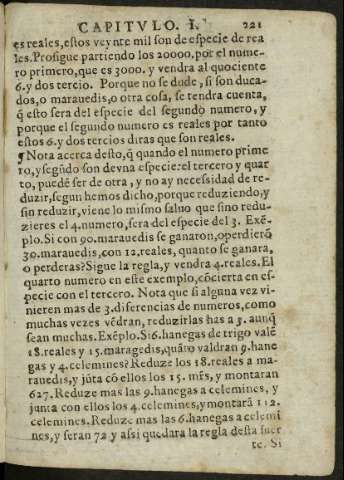 CAPITVLO. I. 221
es reales, estos veynte mil son de especie de rea
les. Prosigue partiendo los 20000. por el nume-
ro primero, que es 3000. y vendra al quociente
6. y dos tercio. Porque no se dude, si son duca-
dos, o marauedis, o otra cosa, se tendra cuenta,
q̃ esto sera del especie del segundo numero, y
porque el segundo numero es reales por tanto
estos 6. y dos tercios diras que son reales.
¶ Nota acerca desto, q̃ quando el numero prime
ro, y segũdo son de vna especie: el tercero y quar
to, puedẽ ser de otra, y no ay necessidad de re-
duzir, segun hemos dicho, porque reduziendo, y
sin reduzir, viene lo mismo saluo que sino redu-
zieres el 4. numero, sera del especie del 3. Exẽ-
plo. Si con 90. marauedis se ganaron, o perdierõ
30. marauedis, con 12. reales, quanto se ganara,
o perderas? Sigue la regla, y vendra 4. reales. El
quarto numero en este exemplo, cõcierta en es-
pecie con el tercero. Nota que si alguna vez vi-
nieren mas de 3. diferencias de numeros, como
muchas vezes vẽdran, reduzirlas has a 3. aunq̃
sean muchas. Exẽplo. Si 6. hanegas de trigo valẽ
18. reales y 15. maragedis, quãto valdran 9. hane
gas y 4. celemines? Reduze los 18. reales a ma-
rauedis, y jũta cõ ellos los 15. mrs, y montaran
627. Reduze mas las 9. hanegas a celemines, y
junta con ellos los 4. celemines, y montarã 112.
celemines. Reduze mas las 6. hanegas a celemi
nes, y seran 72 y assi quedara la regla desta suer
te. Si